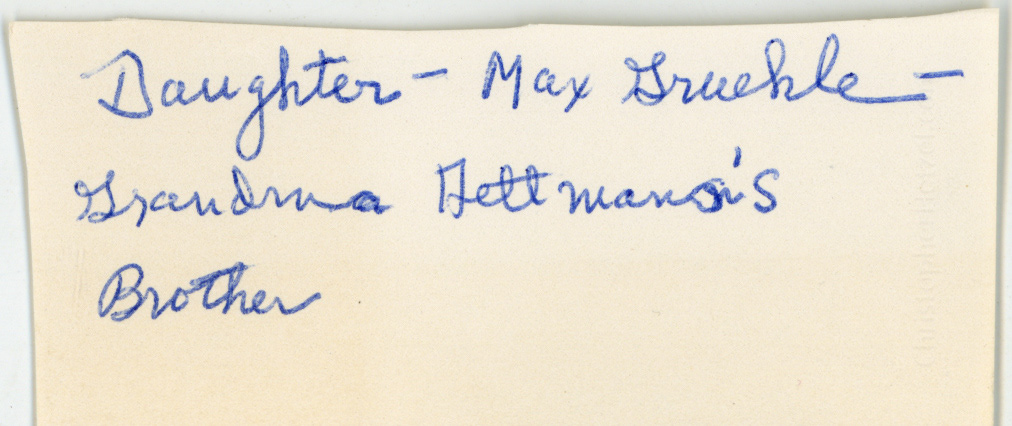 Daughter - Max Gruehle -
Grandma Hettmann's
Brother